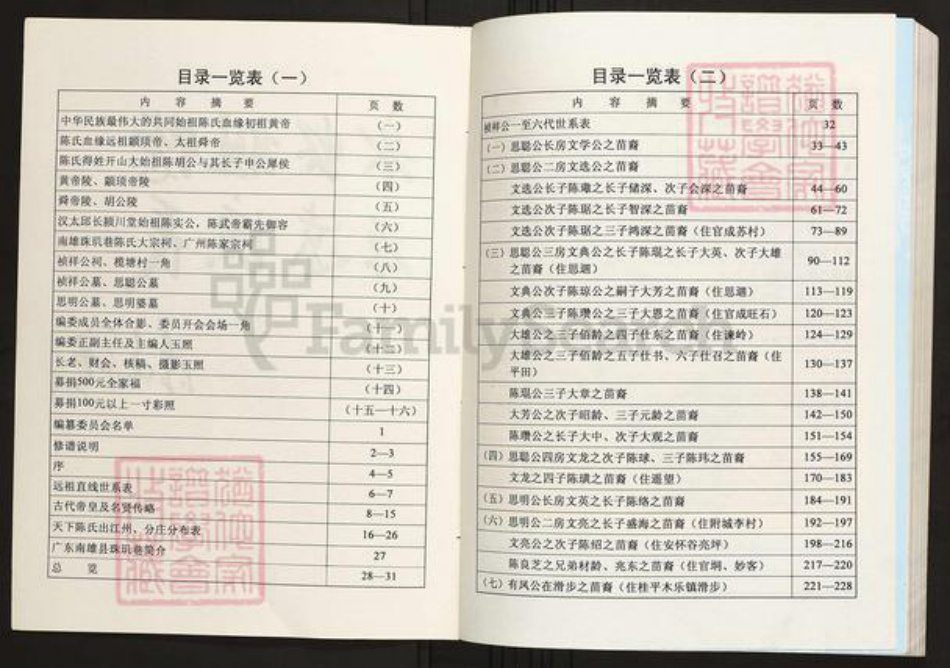 目录一览表（一）
内 容 摘 要 页 数
中华民族最伟大的共同始祖陈氏血缘初祖黄帝 （一）
陈氏血缘远祖颛顼帝、太祖舜帝 （二）
陈氏得姓开山大始祖陈胡公与其长子申公犀侯 （三）
黄帝陵、颛顼帝陵 （四）
舜帝陵、胡公陵 （五）
汉太邱长颍川堂始祖陈实公，陈武帝霸先御容 （六）
南雄珠玑巷陈氏大宗祠、广州陈家宗祠 （七）
祯祥公祠、榄塘村一角 （八）
祯祥公墓、思聪公墓 （九）
思明公墓、思明婆墓 （十）
编委成员全体合影、委员开会会场一角 （十一）
编委正副主任及主编人玉照 （十二）
长老、财会、核稿、摄影玉照 （十三）
募捐500元全家福 （十四）
募捐100元以上一寸彩照 （十五—十六）
编纂委员会名单 1
修谱说明 2—3
序 4—5
远祖直线世系表 6—7
古代帝皇及名贤传略 8—15
天下陈氏出江州、分庄分布表 16—26
广东南雄县珠玑巷简介 27
总 览 28—31
目录一览表（二）
内 容 摘 要 页 数
祯祥公一至六代世系表 32
（一）思聪公长房文学公之苗裔 33—43
（二）思聪公二房文选公之苗裔
文选公长子陈璥之长子储深、次子会深之苗裔 44—60
文选公次子陈琚之长子智深之苗裔 61—72
文选公次子陈琚之三子鸿深之苗裔（住官成苏村） 73—89
（三）思聪公三房文典公之长子陈琨之长子大英、次子大雄
之苗裔（住思迴） 90—112
文典公次子陈琼公之嗣子大芳之苗裔（住思迴） 113—119
文典公三子陈瓒公之三子大恩之苗裔（住官成旺石） 120—123
大雄公之三子佰龄之四子仕东之苗裔（住谏岭） 124—129
大雄公之三子佰龄之五子仕书、六子仕召之苗裔（住
平田） 130—137
陈琨公三子大章之苗裔 138—141
大芳公之次子昭龄、三子元龄之苗裔 142—150
陈瓒公之长子大中、次子大观之苗裔 151—154
（四）思聪公四房文龙之次子陈球、三子陈玮之苗裔 155—169
文龙之四子陈璜之苗裔（住遥望） 170—183
（五）思明公长房文英之长子陈络之苗裔 184—191
（六）思明公二房文亮之长子盛海之苗裔（住附城李村） 192—197
文亮公之次子陈绍之苗裔（住安怀谷亮坪） 198—216
陈良芝之兄弟材龄、兆东之苗裔（住官垌、妙客） 217—220
（七）有凤公在滑步之苗裔（住桂平木乐镇滑步） 221—228
FamilySearch